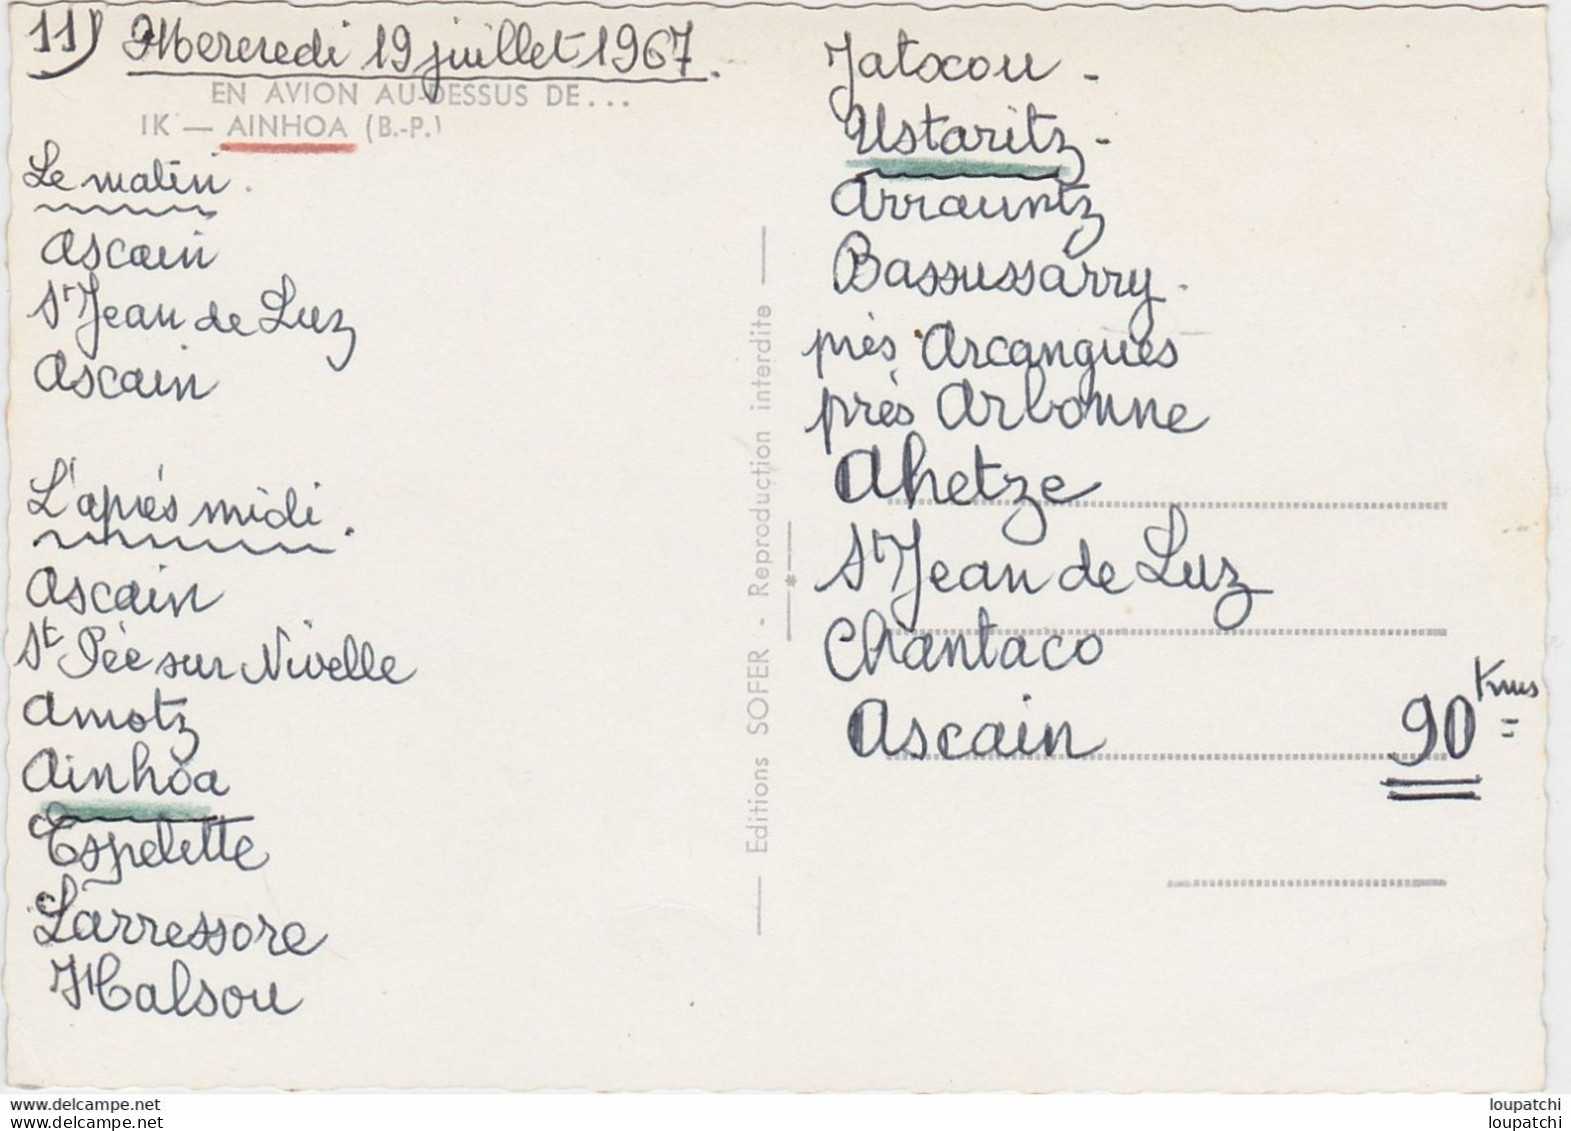 11) Mercredi 19 juillet 1967.
EN AVION AU-DESSUS DE...
IK — AINHOA (B.-P.)
Le matin.
Ascain
St Jean de Luz
Ascain
L'après midi.
Ascain
St Pée sur Nivelle
Amotz
Ainhoa
Espelette
Larressore
Halsou
Editions SOFER - Reproduction interdite
Jatxou -
Ustaritz -
Arrauntz
Bassussarry.
près Arcangues
près Arbonne
Ahetze
St Jean de Luz
Chantaco
Ascain 90 Kms =
www.delcampe.net
www.delcampe.net
loupatchi
loupatchi